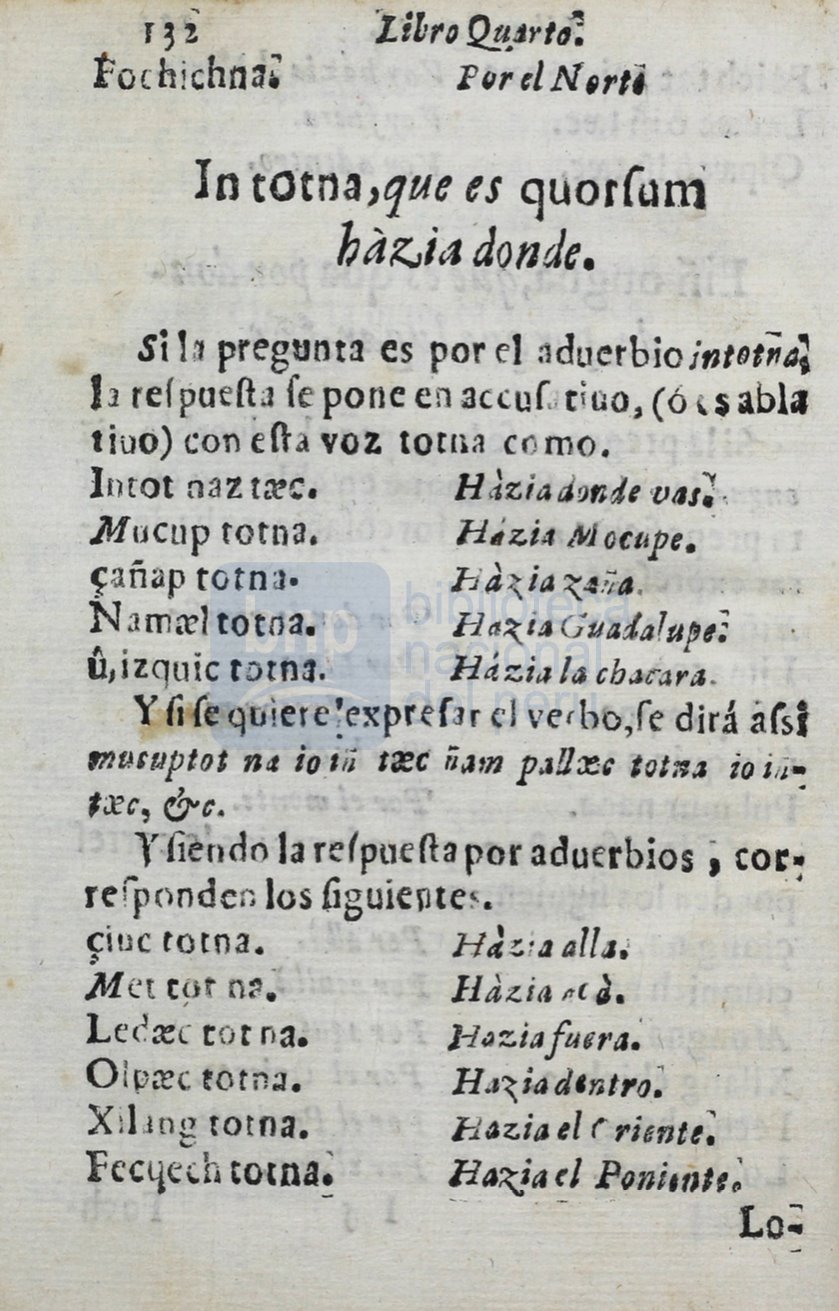 132 Libro Quarto.
Fochichna. Por el Norte

In totna, que es quorſum
hàzia donde.

Si la pregunta es por el aduerbio intotña,
la reſpueſta ſe pone en accuſatiuo, (ó es abla
tiuo) con eſta voz totna como.
Intot naz tæc. Hàzia donde vas.
Mucup totna. Házia Mocupe.
çañap totna. Hàzia zaña.
Namæl totna. Hazia Guadalupe.
û, izquic totna. Házia la chacara.
Y ſi ſe quiere expreſar el verbo, ſe dirá aſsi
mucuptot na io iñ tæc ñam pallæc totna io in-
tæc, &c.
Y ſiendo la reſpueſta por aduerbios, cor-
reſponden los ſiguientes.
çiuc totna. Hàzia alla.
Met tot na. Hàzia acà.
Ledæc tot na. Hazia fuera.
Olpæc totna. Hazia dentro.
Xilang totna. Hazia el Oriente.
Fecqech totna. Hazia el Poniente.
Lo-
bnp biblioteca
nacional
del perú